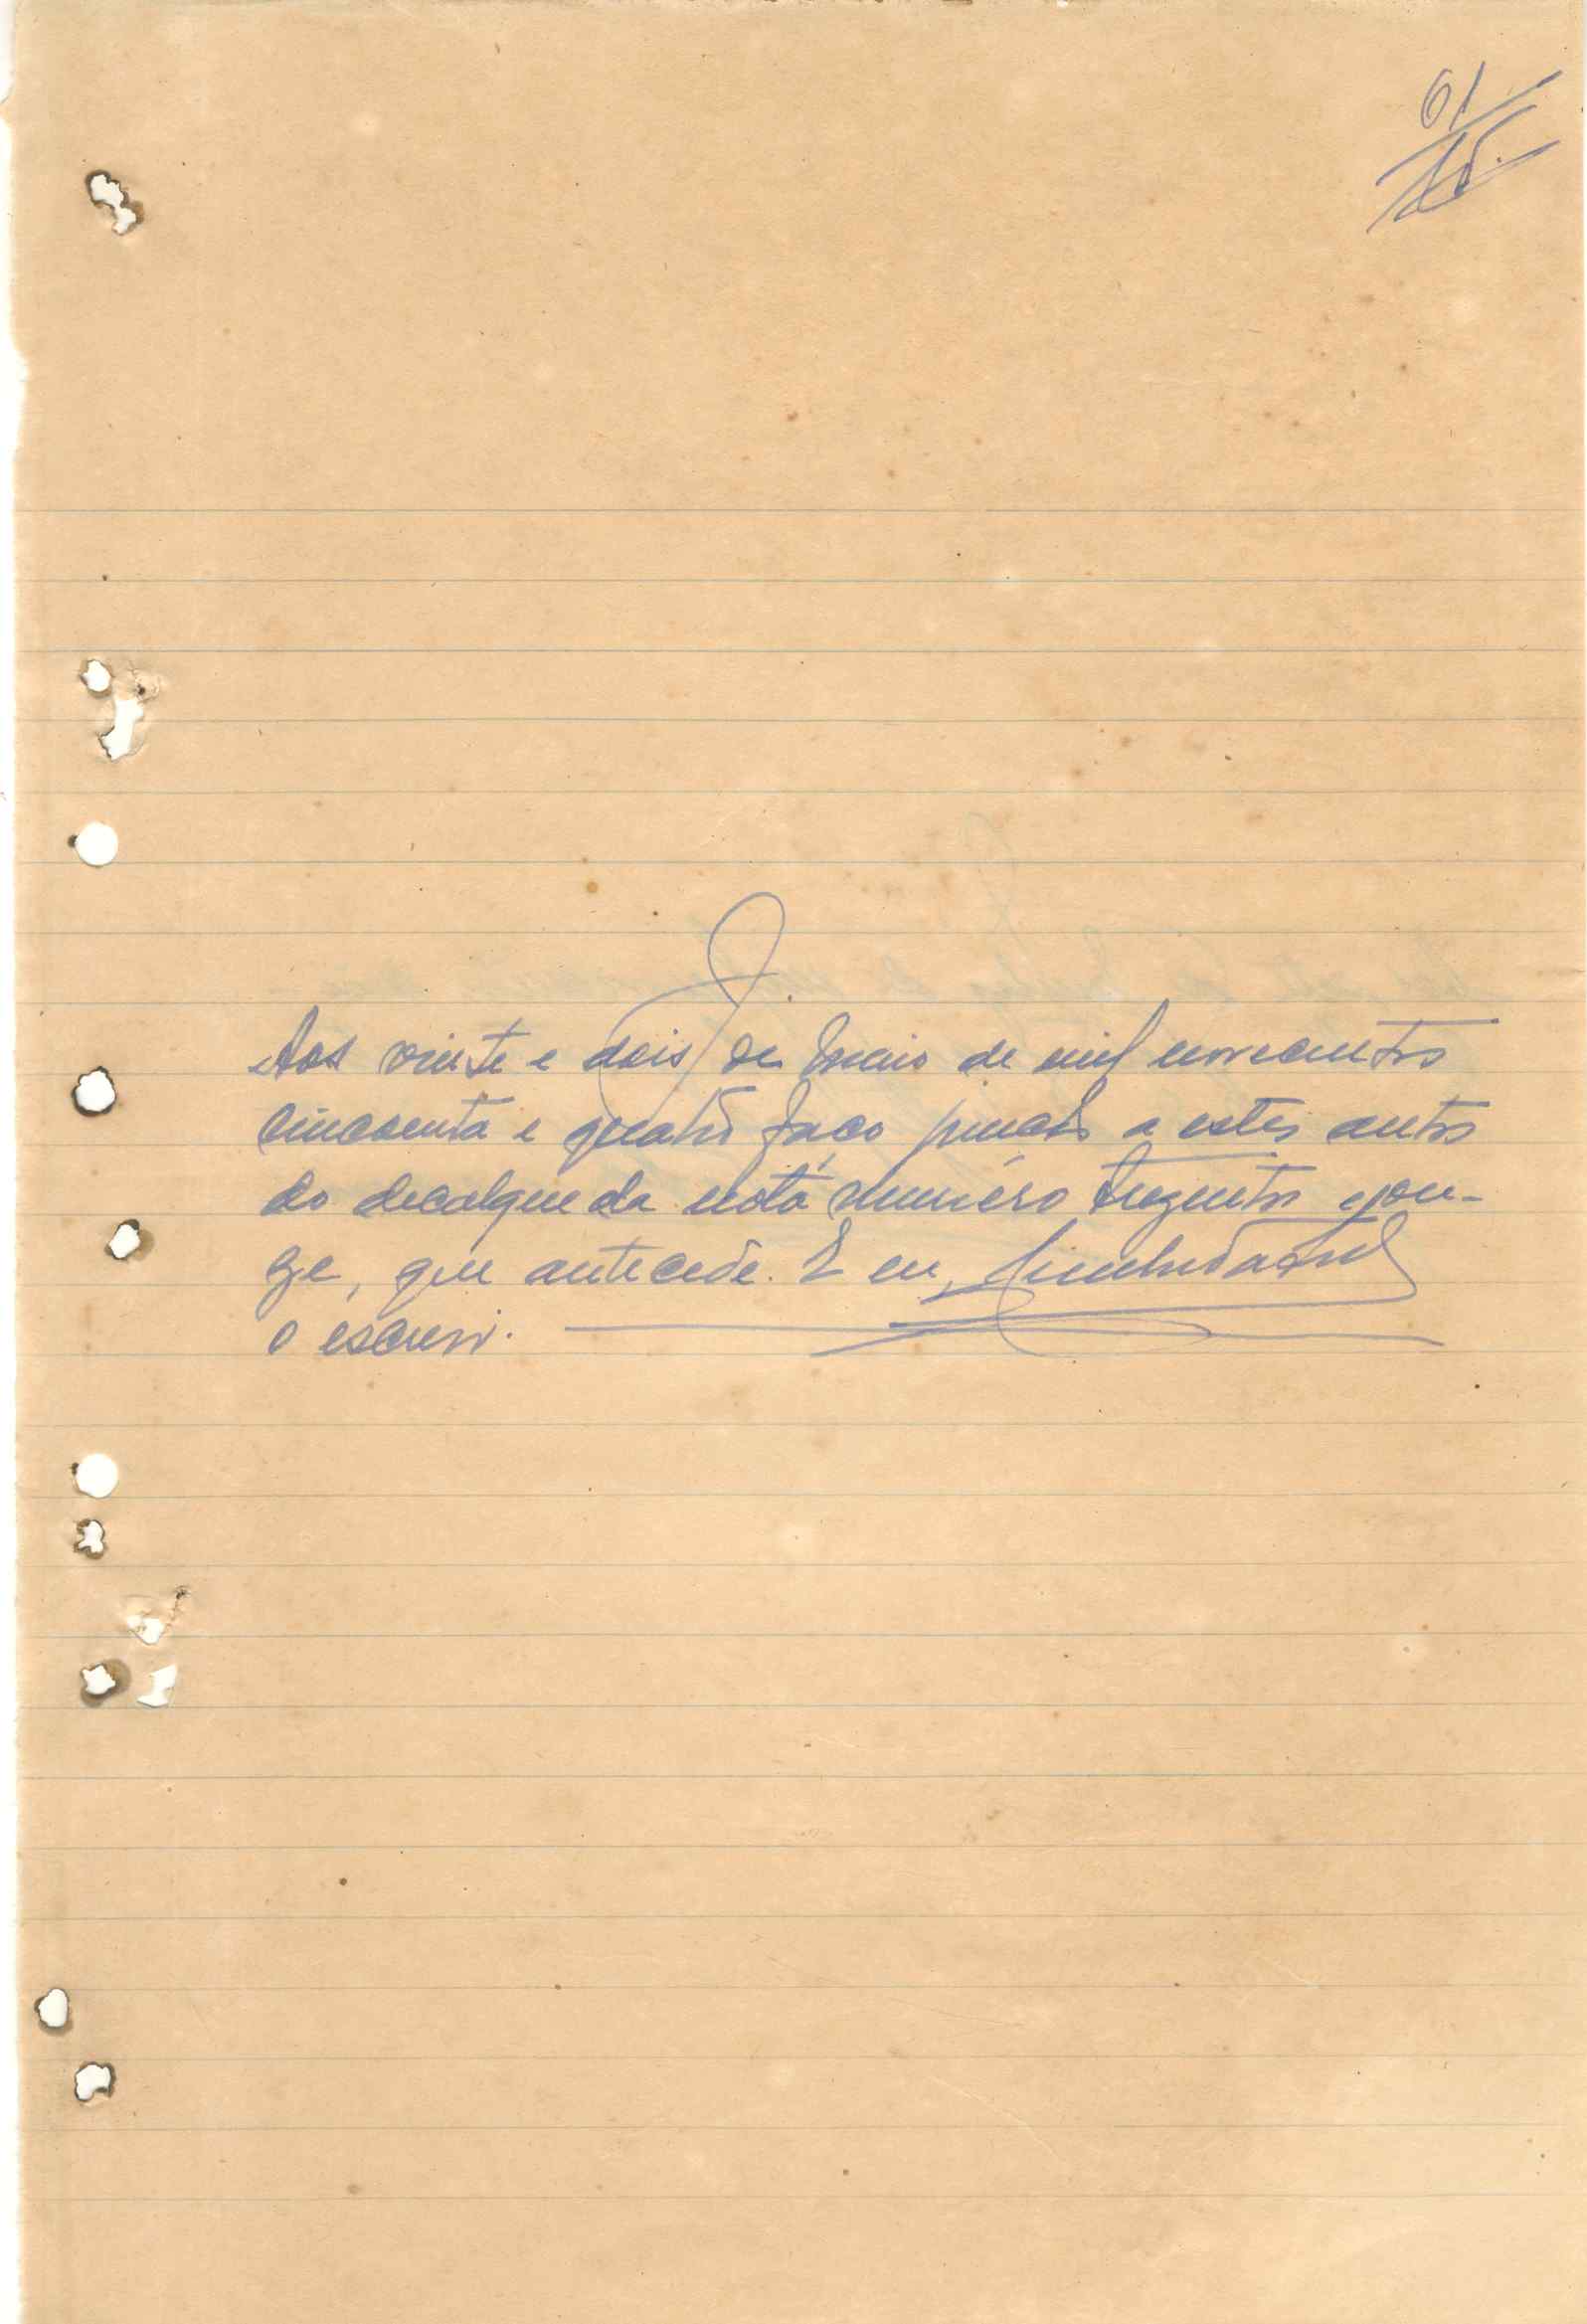 61
J.
Aos vinte e dois de Maio de mil novecentos
cincoenta e quatro faço juncão a estes autos
do decalque da nota número trezentos e on-
ze, que antecede. E eu,
o escrevi.